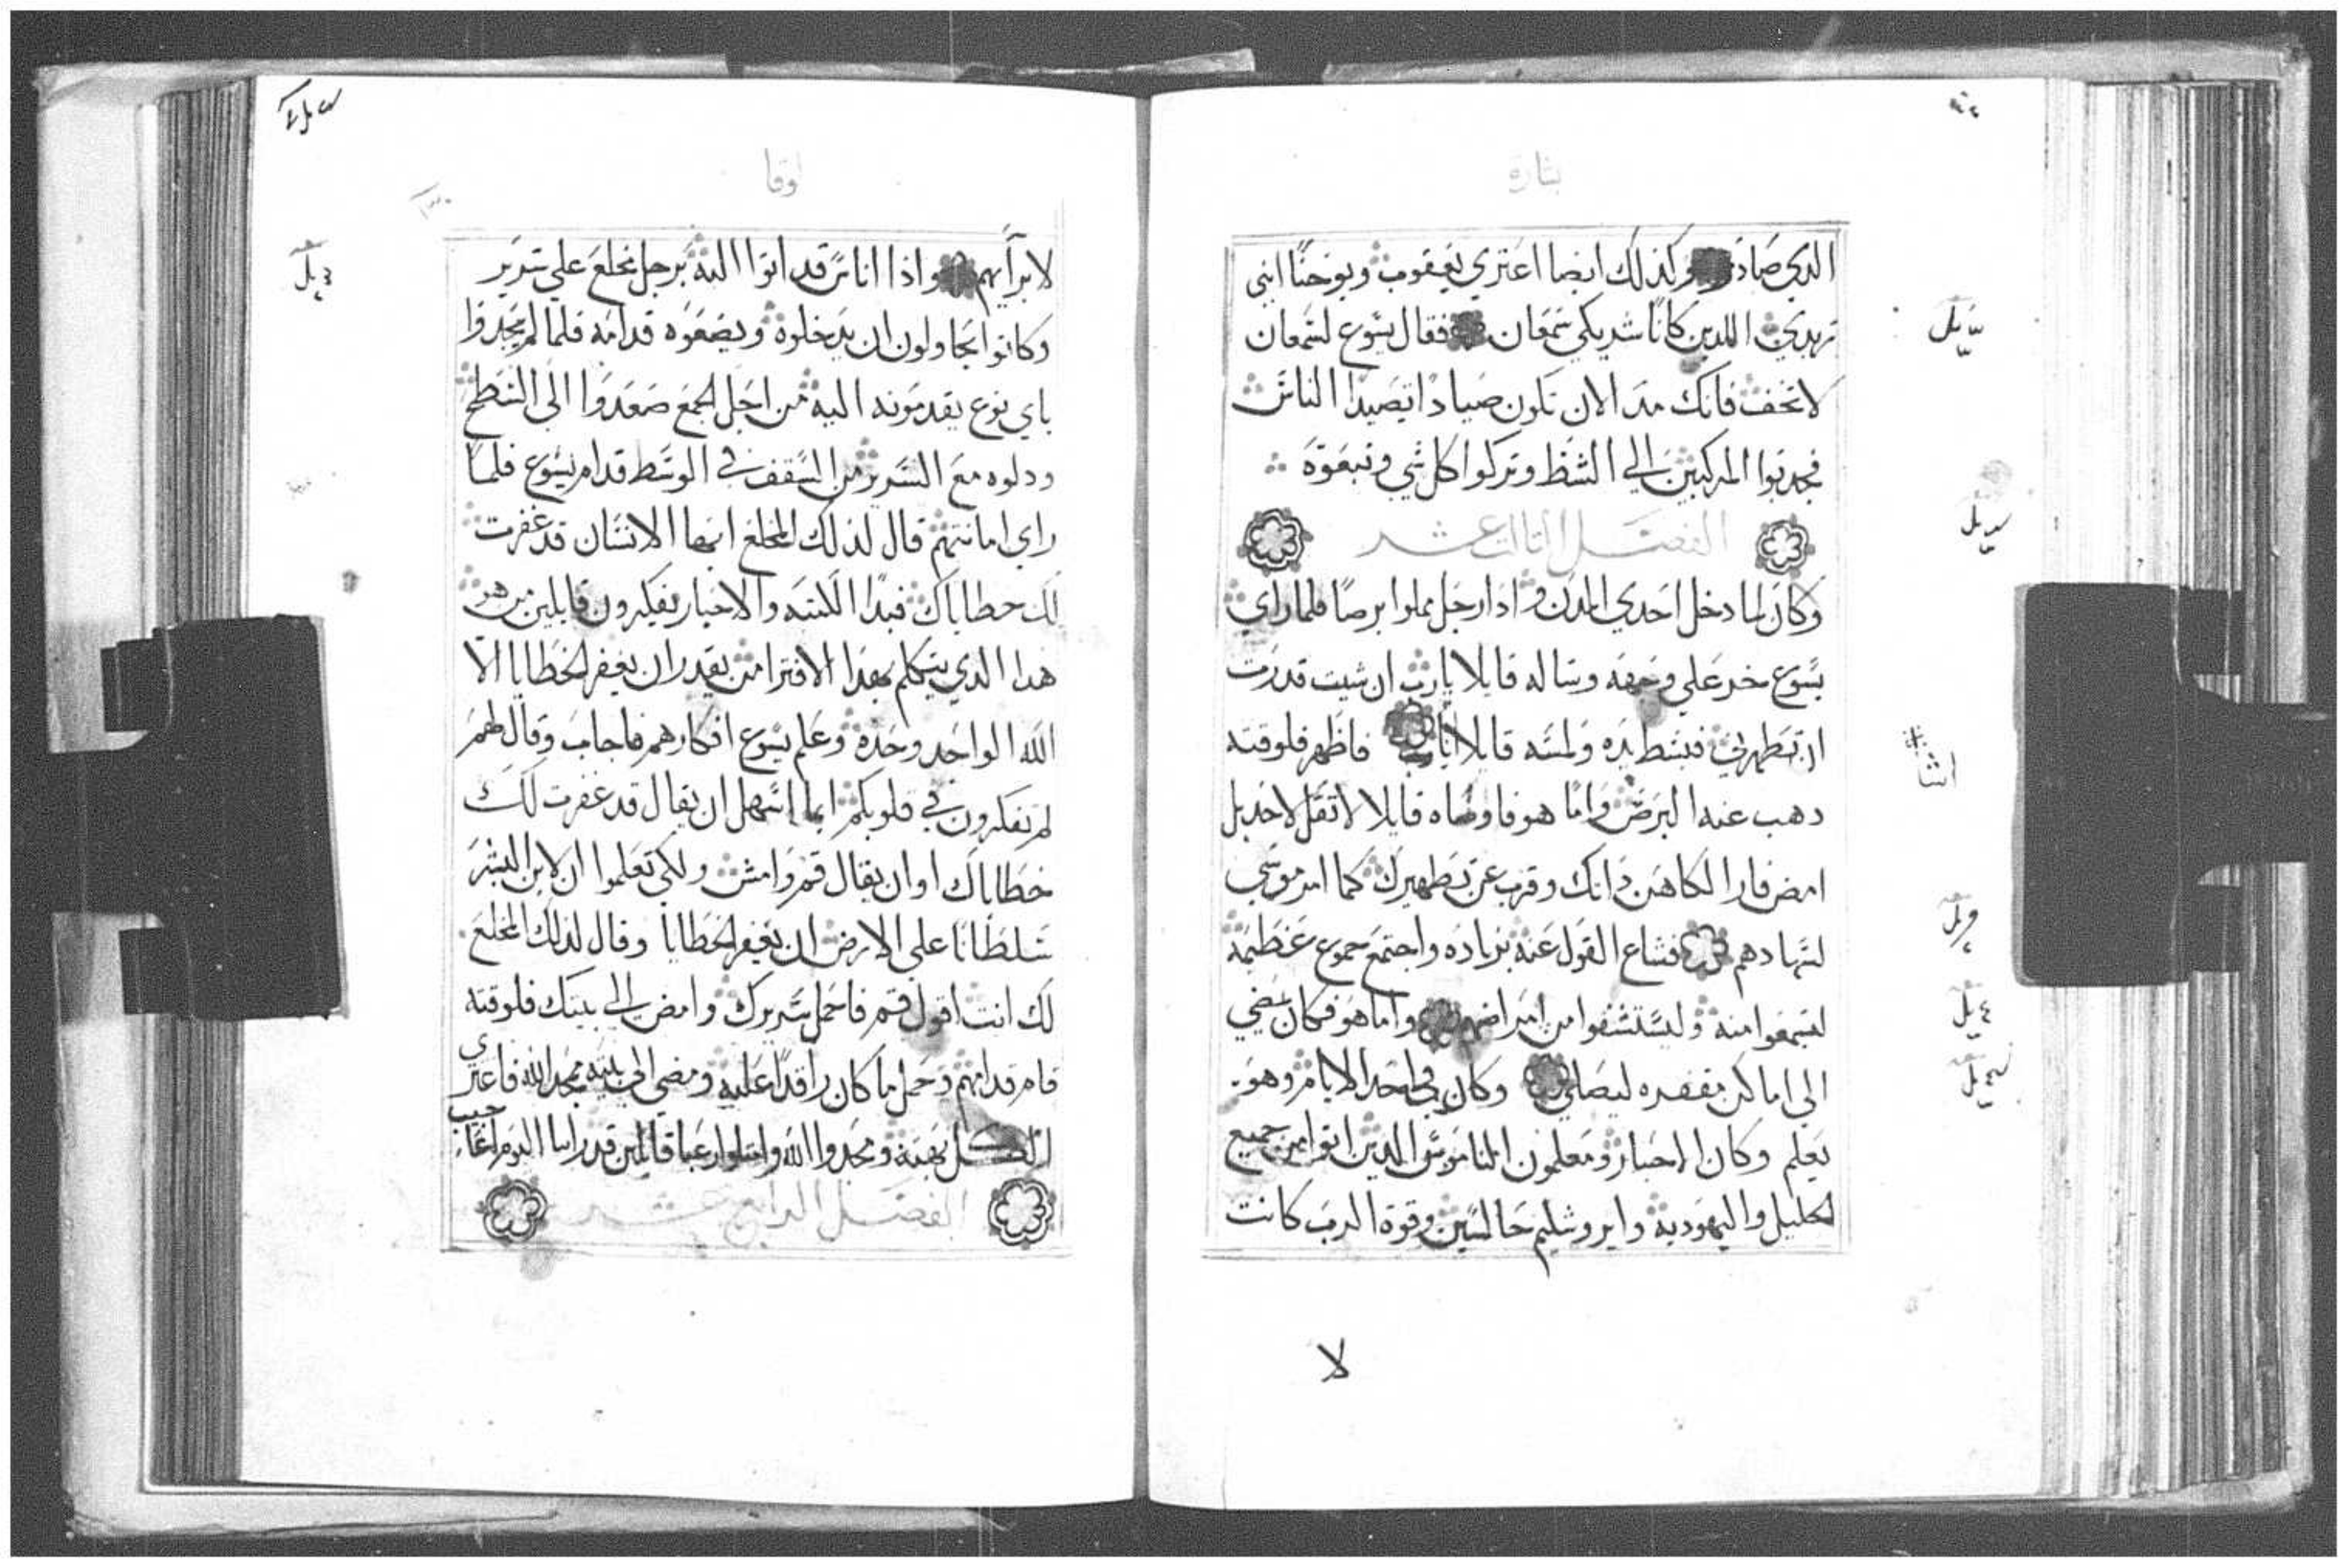 بشارة
الذي صادو وكذلك ايضا اعتري يعقوب ويوحنا ابني
زبدي اللدين كانا شريكي سمعان فقال يسوع لسمعان
لا تخف فانك مند الان تكون صيادا تصيد الناس
فجدبوا المركبين الي الشط وتركوا كل شي وتبعوه
الفصل الثالث عشر
وكان لما دخل احدي المدن وادا رجل مملوا برصا فلما راي
يسوع خر علي وجهه وساله قايلا يارب ان شيت قدرت
ان تطهرني فبسط يده ولمسه قايلا فاطهر فلوقته
دهب عنه البرص واما هو فاوصاه قايلا لا تقل لاحد بل
امض فار الكاهن داتك وقرب عن تطهيرك كما امر موسي
لشهادهم فشاع القول عنه بزياده واجتمع جموع عظيمه
ليسمعوا منه وليستشفوا من امراضهم واما هو فكان يمضي
الي اماكن مقفره ليصلي وكان في احد الايام وهو
يعلم وكان الاحبار ومعلمون الناموس الدين اتوا من جميع
الجليل واليهوديه وايروشليم جالسين وقوة الرب كانت
لا
لوقا
لابرآيهم واذا اناس قد اتوا اليه برجل مخلع علي سرير
وكانوا يحاولون ان يدخلوه ويضعوه قدامه فلما لم يجدوا
باي نوع يقدمونه اليه من اجل الجمع صعدوا الي السطح
ودلوه مع السرير من السقف في الوسط قدام يسوع فلما
راي امانتهم قال لذلك المخلع ايها الانسان قد غفرت
لك خطاياك فبدا الكتبه والاحبار يفكرون قايلين من هو
هدا الدي يتكلم بهدا الافترا من يقدر ان يغفر الخطايا الا
الله الواحد وحده وعلم يسوع افكارهم فاجاب وقال لهم
لم تفكرون في قلوبكم ايما اسهل ان يقال قد غفرت لك
خطاياك او ان يقال قم وامش ولكي تعلموا ان لابن البشر
سلطانا علي الارض ان يغفر الخطايا وقال لذلك المخلع
لك انت اقول قم فاحمل سريرك وامض الي بيتك فلوقته
قام قدامهم وحمل ما كان راقدا عليه ومضي الي بيته يمجد الله فاعتري
الكل بهته ومجدوا الله وامتلوا رعبا قايلين قد راينا اليوم اعاجيب
الفصل الرابع عشر